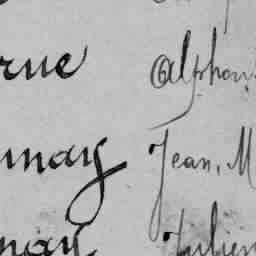 rue Alphon
nnay Jean, M
nay Julien